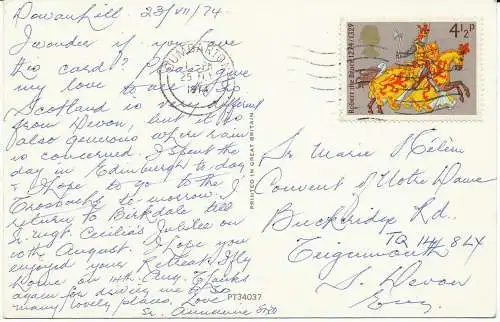 Dowanhill. 23/VII/74.
I wonder if you have
this card? Please give
my love to all the Srs
Scotland is very different
from Devon, but it is
also generous where rain
is concerned. I spent the
day in Edinburgh to-day
& I hope to go to the
Trossachs to-morrow. I
return to Birkdale till
Sr. Cecilia's Jubilee on
10th August. I hope you
enjoyed your Retreat. I fly
home on 14th Aug. Thanks
again for driving me to so
many lovely places. Love
Sr.
PT34037
PRINTED IN GREAT BRITAIN
DUMBARTON
25
1974
Robert the Bruce 1274/1329
4½P
Sr Marie Hélèn
Convent of Notre Dame
Buckeridge Rd.,
Teignmouth
TQ14 8LX
S. Devon
Eng.